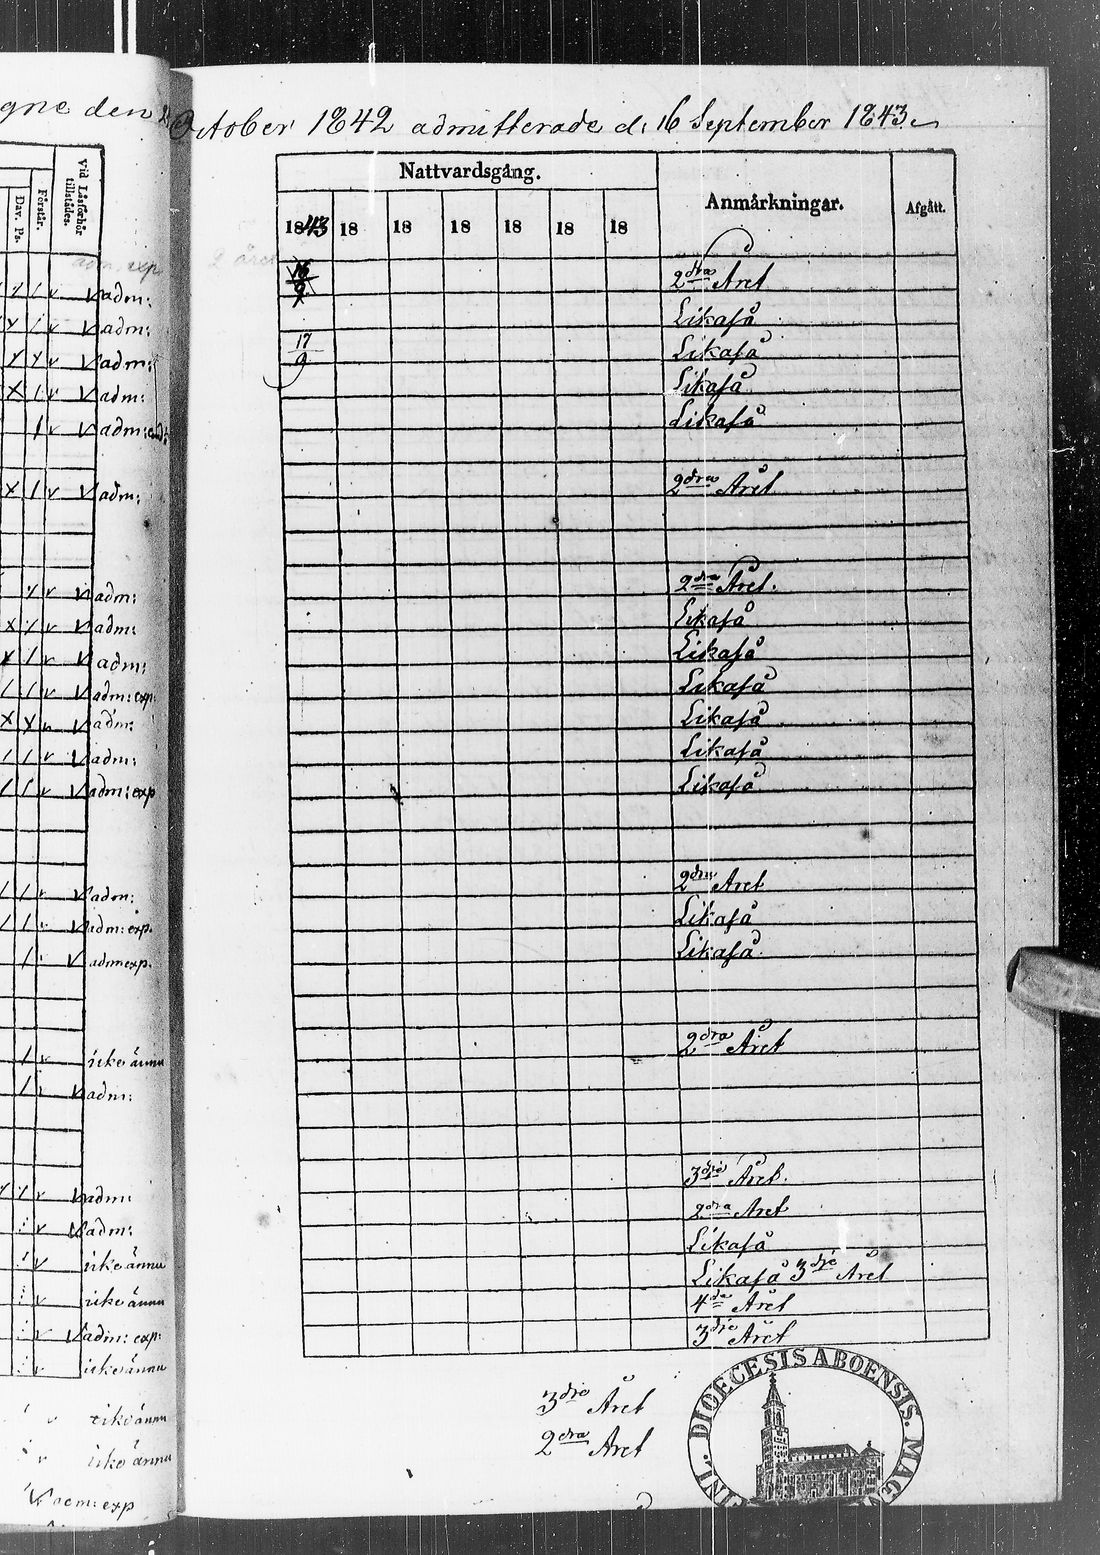 gne den
October 1842 admitterade d: 16 September 1843.
vid Läsförhör tillstådes.
Förstår.
Dav. Ps.
Nattvardsgång.
Anmårkningar.
Afgått.
1843 18 18 18 18 18 18
adm. exp
adm: 16/9 2dra Året
adm: Likaså
adm: 17/9 Likaså
adm: Likaså
adm: Likaså
adm: 2dra Året
adm: 2dra Året.
adm: Likaså
adm: Likaså
adm: exp: Likaså
adm: Likaså
adm: Likaså
adm: exp Likaså
adm: 2dra Året
adm: exp. Likaså
adm exp. Likaså
icke ännu 2dra Året
adm:
adm: 3die Året.
adm: 2dra Året
icke ännu Likaså
icke ännu Likaså 3die Året
adm: exp: 4de Året
icke ännu 3die Året
icke ännu 3die Året
icke ännu 2dra Året
adm: exp
DIOECESIS ABOENSIS. MAGN